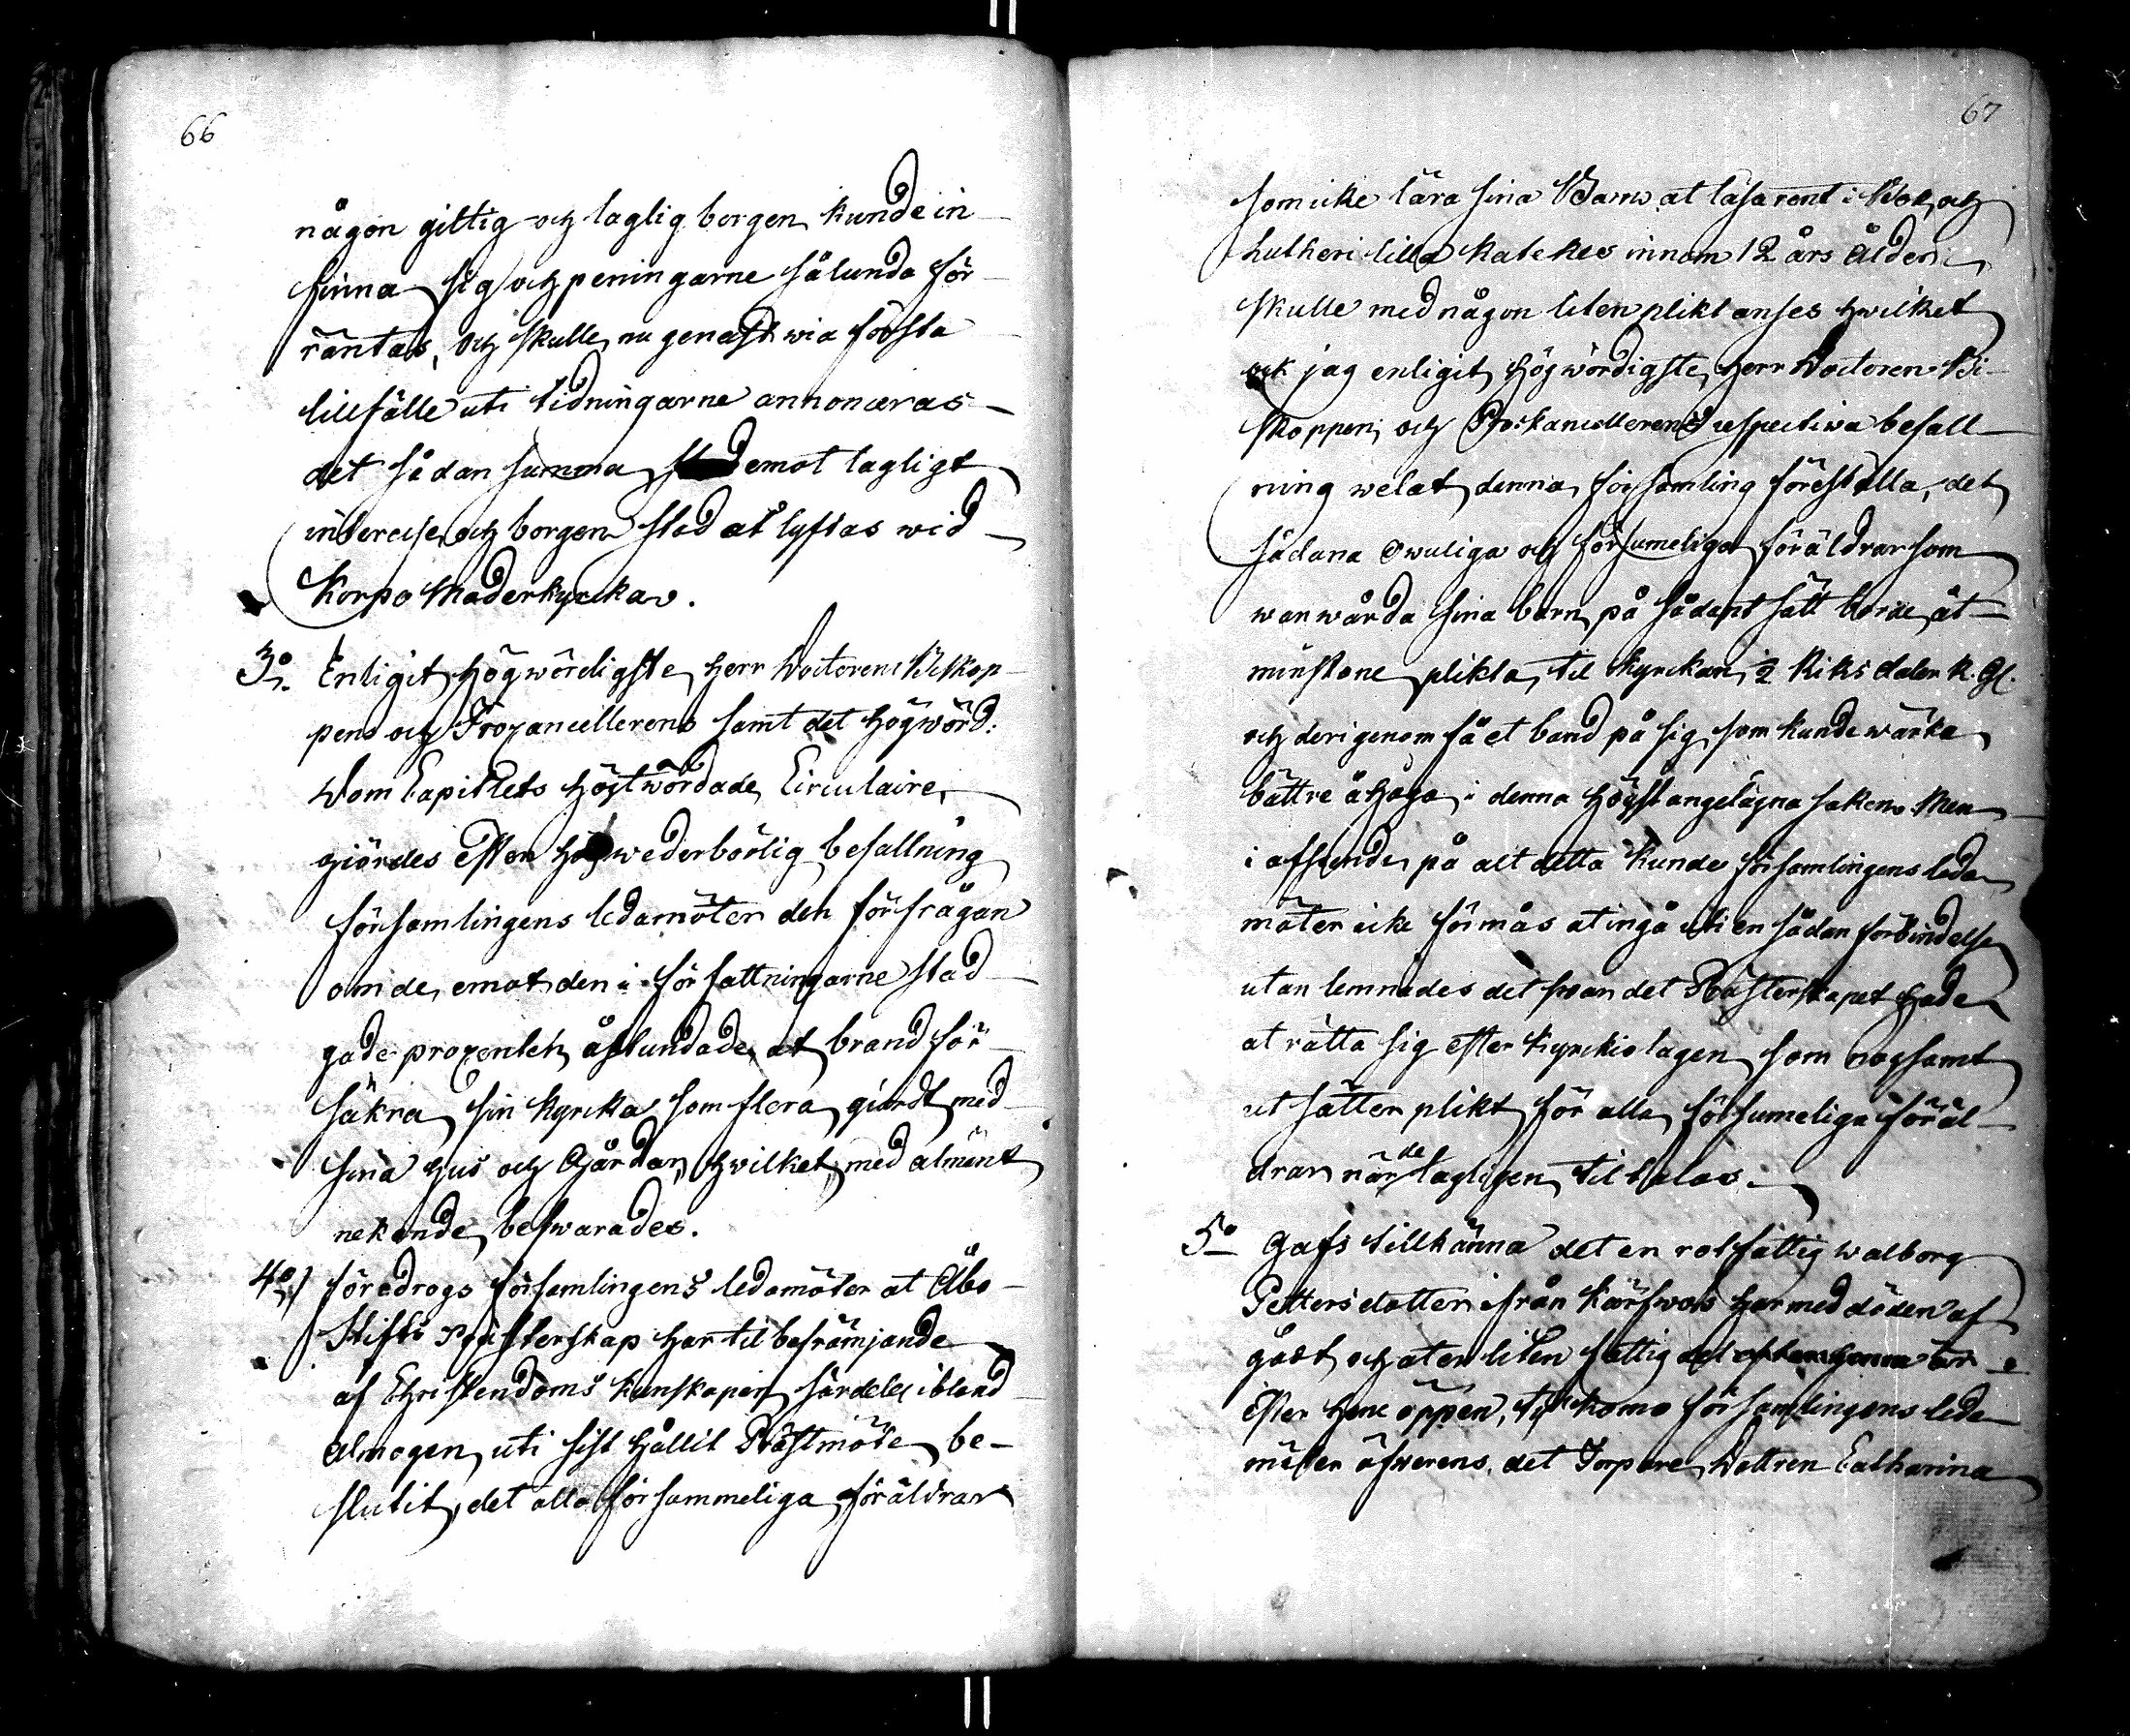 66
någon giltig och laglig borgen kunde in-
finna sig och peningarne sålunda för-
räntas, och skulle nu genast wia första
tillfälle uti tidningarne annonceras
det sådan summa emot lagligt
interesse och borgen stod at lyftas wid
Korpo Moderkyrcka.
3o. Enligit Högwördigste Herr Doctorens Biskop-
pens och Procancellerens samt det Högwörd:
Dom Capitlets Högtwördade Circulaire,
giördes efter wederbörlig befallning
församlingens ledamöter den förfrågan
om de, emot den i författningarne stad-
gade procenten åstundade at brandför-
säkra sin Kyrcka som flera giordt med
sina Hus och Gårdar, hwilket med alment
nekande beswarades.
4o) föredrogs församlingens ledamöter at Åbo
Stifts Prästerskap har til befrämjande
af Christendoms kunskapen särdeles ibland
Almogen uti sist hållit Prästmöte be-
slutit, det alla försummeliga föräldrar
67
som icke lära sina Barn at läsa rent i Bok och
Lutheri lilla Katekes innom 12 års ålder
skulle med någon liten plikt anses hwilket
ock jag enligit Högwördigste Herr Doctoren Bi-
skoppen och Prokancellerens respectiwa befall-
ning welat denna församling föreställa, det
sådana owuliga och försumeliga föräldrar som
wanwårda sina barn på sådant sätt borde åt-
minstone plikta til Kyrckan 2 Riksdaler R. Gl.
och derigenom få et band på sig som kunde wärka
bättre åhåga i denna högst angelägna saken. Men
i afseende på alt detta kunde församlingens leda-
möter icke förmås at ingå uti en sådan förbindelse
utan lemnades det det Prästerskapet hade
at rätta sig efter Kyrckiolagen som nogsamt
utsätter plikt för alla försumeliga föräl-
drar när de lagligen tiltalas.
5o Gafs tillkänna det en rotfattig Walborg
Petters dotter ifrån Kärfwas har med döden af-
gådt och at en liten fattig del är
efter hene öppen, ty komo församlingens leda-
möter öfwerens, det Torpare Dottren Catharina